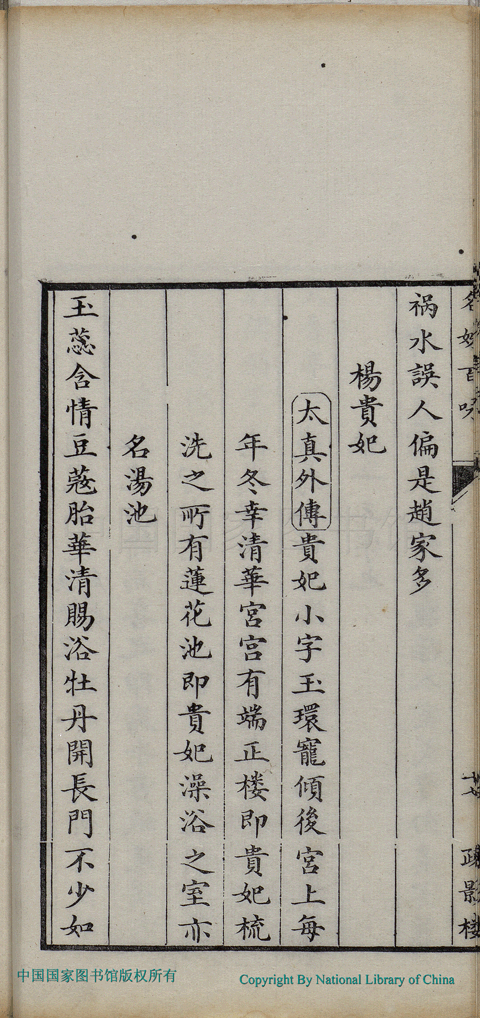 禍水誤人偏是趙家多
楊貴妃
太真外傳貴妃小字玉環寵傾後宮上每
年冬幸清華宮宮有端正楼即貴妃梳
洗之所有蓮花池即貴妃澡浴之室亦
名湯池
玉蕊含情豆蔻胎華清賜浴牡丹開長門不少如
中国国家图书馆版权所有
Copyright By National Library of China